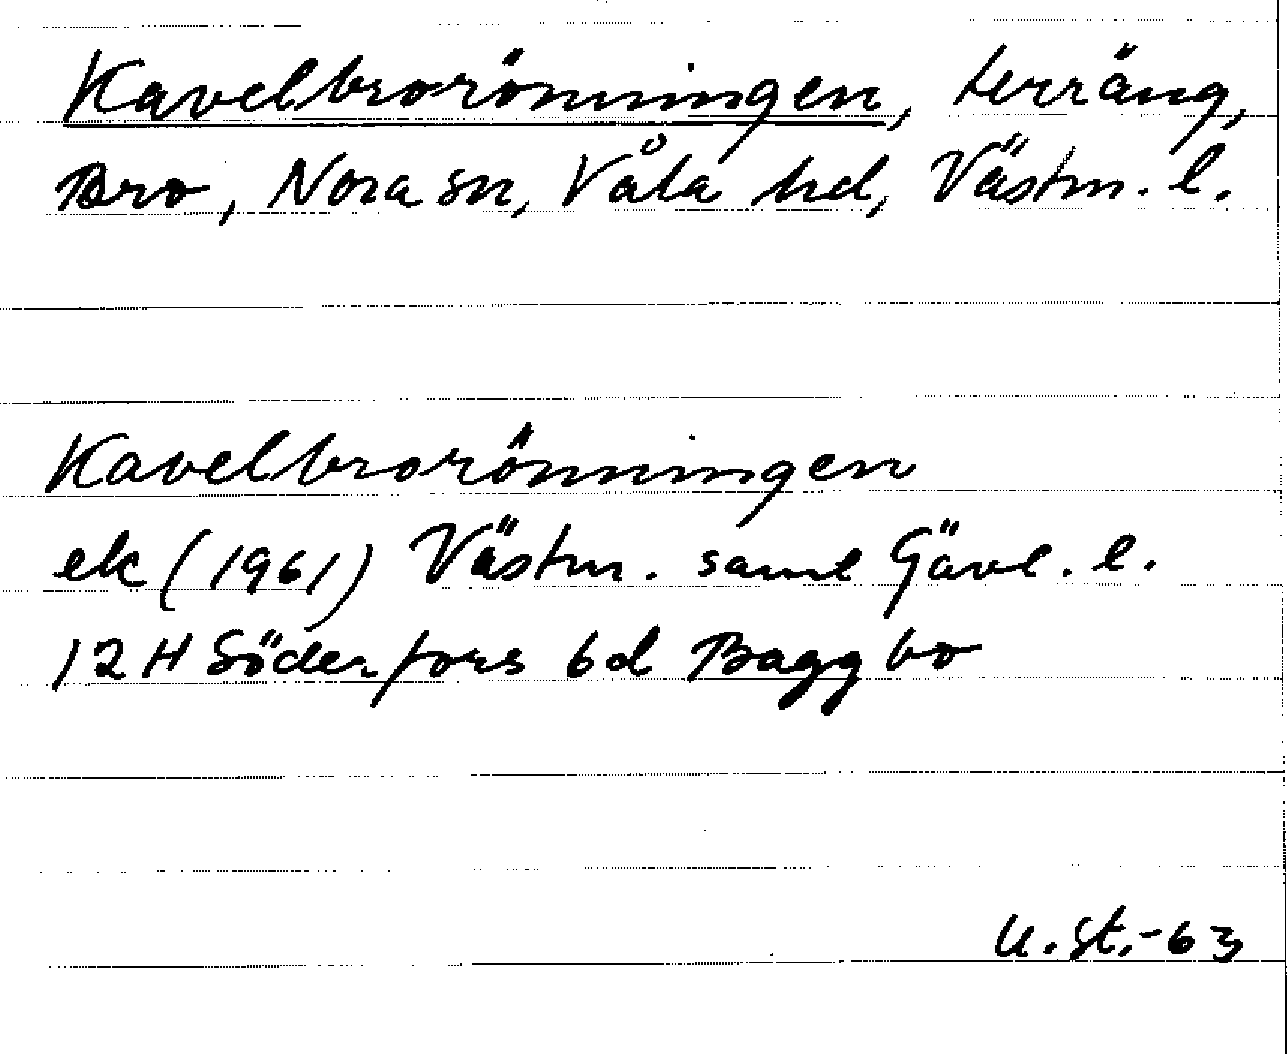 Kavelbrorönningen, terräng,
Bro, Nora sn, Våla hd, Västm. l.
Kavelbrorönningen
ek (1961) Västm. samt Gävl. l.
12 H Söderfors 6d Baggbo
U. St. -63